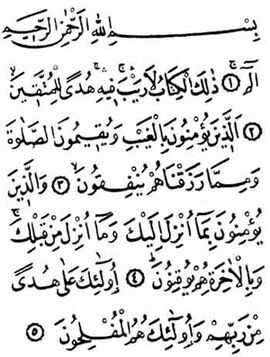 بِسْمِ اللهِ الرَّحْمٰنِ الرَّحِيْمِ
الٓمّٓ ﴿١﴾ ذٰلِكَ الْكِتَابُ لَارَيْبَ ۛ فِيْهِ ۛ هُدًى لِلْمُتَّقِيْنَ
﴿٢﴾ اَلَّذِيْنَ يُؤْمِنُوْنَ بِالْغَيْبِ وَيُقِيمُوْنَ الصَّلَاوةَ
وَمِمَّا رَزَقْنَاهُمْ يُنْفِقُوْنَ ﴿٣﴾ وَالَّذِيْنَ
يُؤْمِنُوْنَ بِمَا اُنْزِلَ اِلَيْكَ وَمَا اُنْزِلَ مِنْ قَبْلِكَ
وَبِالْاٰخِرَةِ هُمْ يُوقِنُوْنَ ﴿٤﴾ اُولٰئِكَ عَلٰى هُدًى
مِنْ رَبِّهِمْ وَاُولٰئِكَ هُمُ الْمُفْلِحُوْنَ ﴿٥﴾